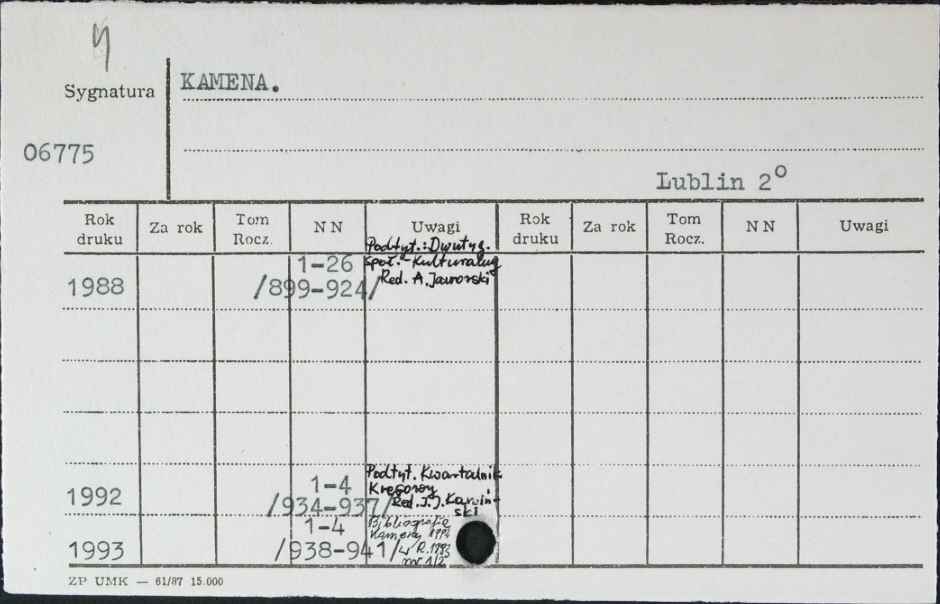 4
Sygnatura KAMENA.
06775
Lublin 2°
Rok druku Za rok Tom Rocz. NN Uwagi Rok druku Za rok Tom Rocz. NN Uwagi
Podtyt.: Dwutyg.
1-26 społ.-kulturalny
1988 /899-924/ Red. A. Jaworski
Podtyt. Kwartalnik
1-4 Kresowy
1992 /934-937/ Red. J.J. Kamiń-
ski
1-4 Bibliografia
Kameny 1992
1993 /938-941/ w R. 1993
nr 1/2
ZP UMK — 61/87 15.000